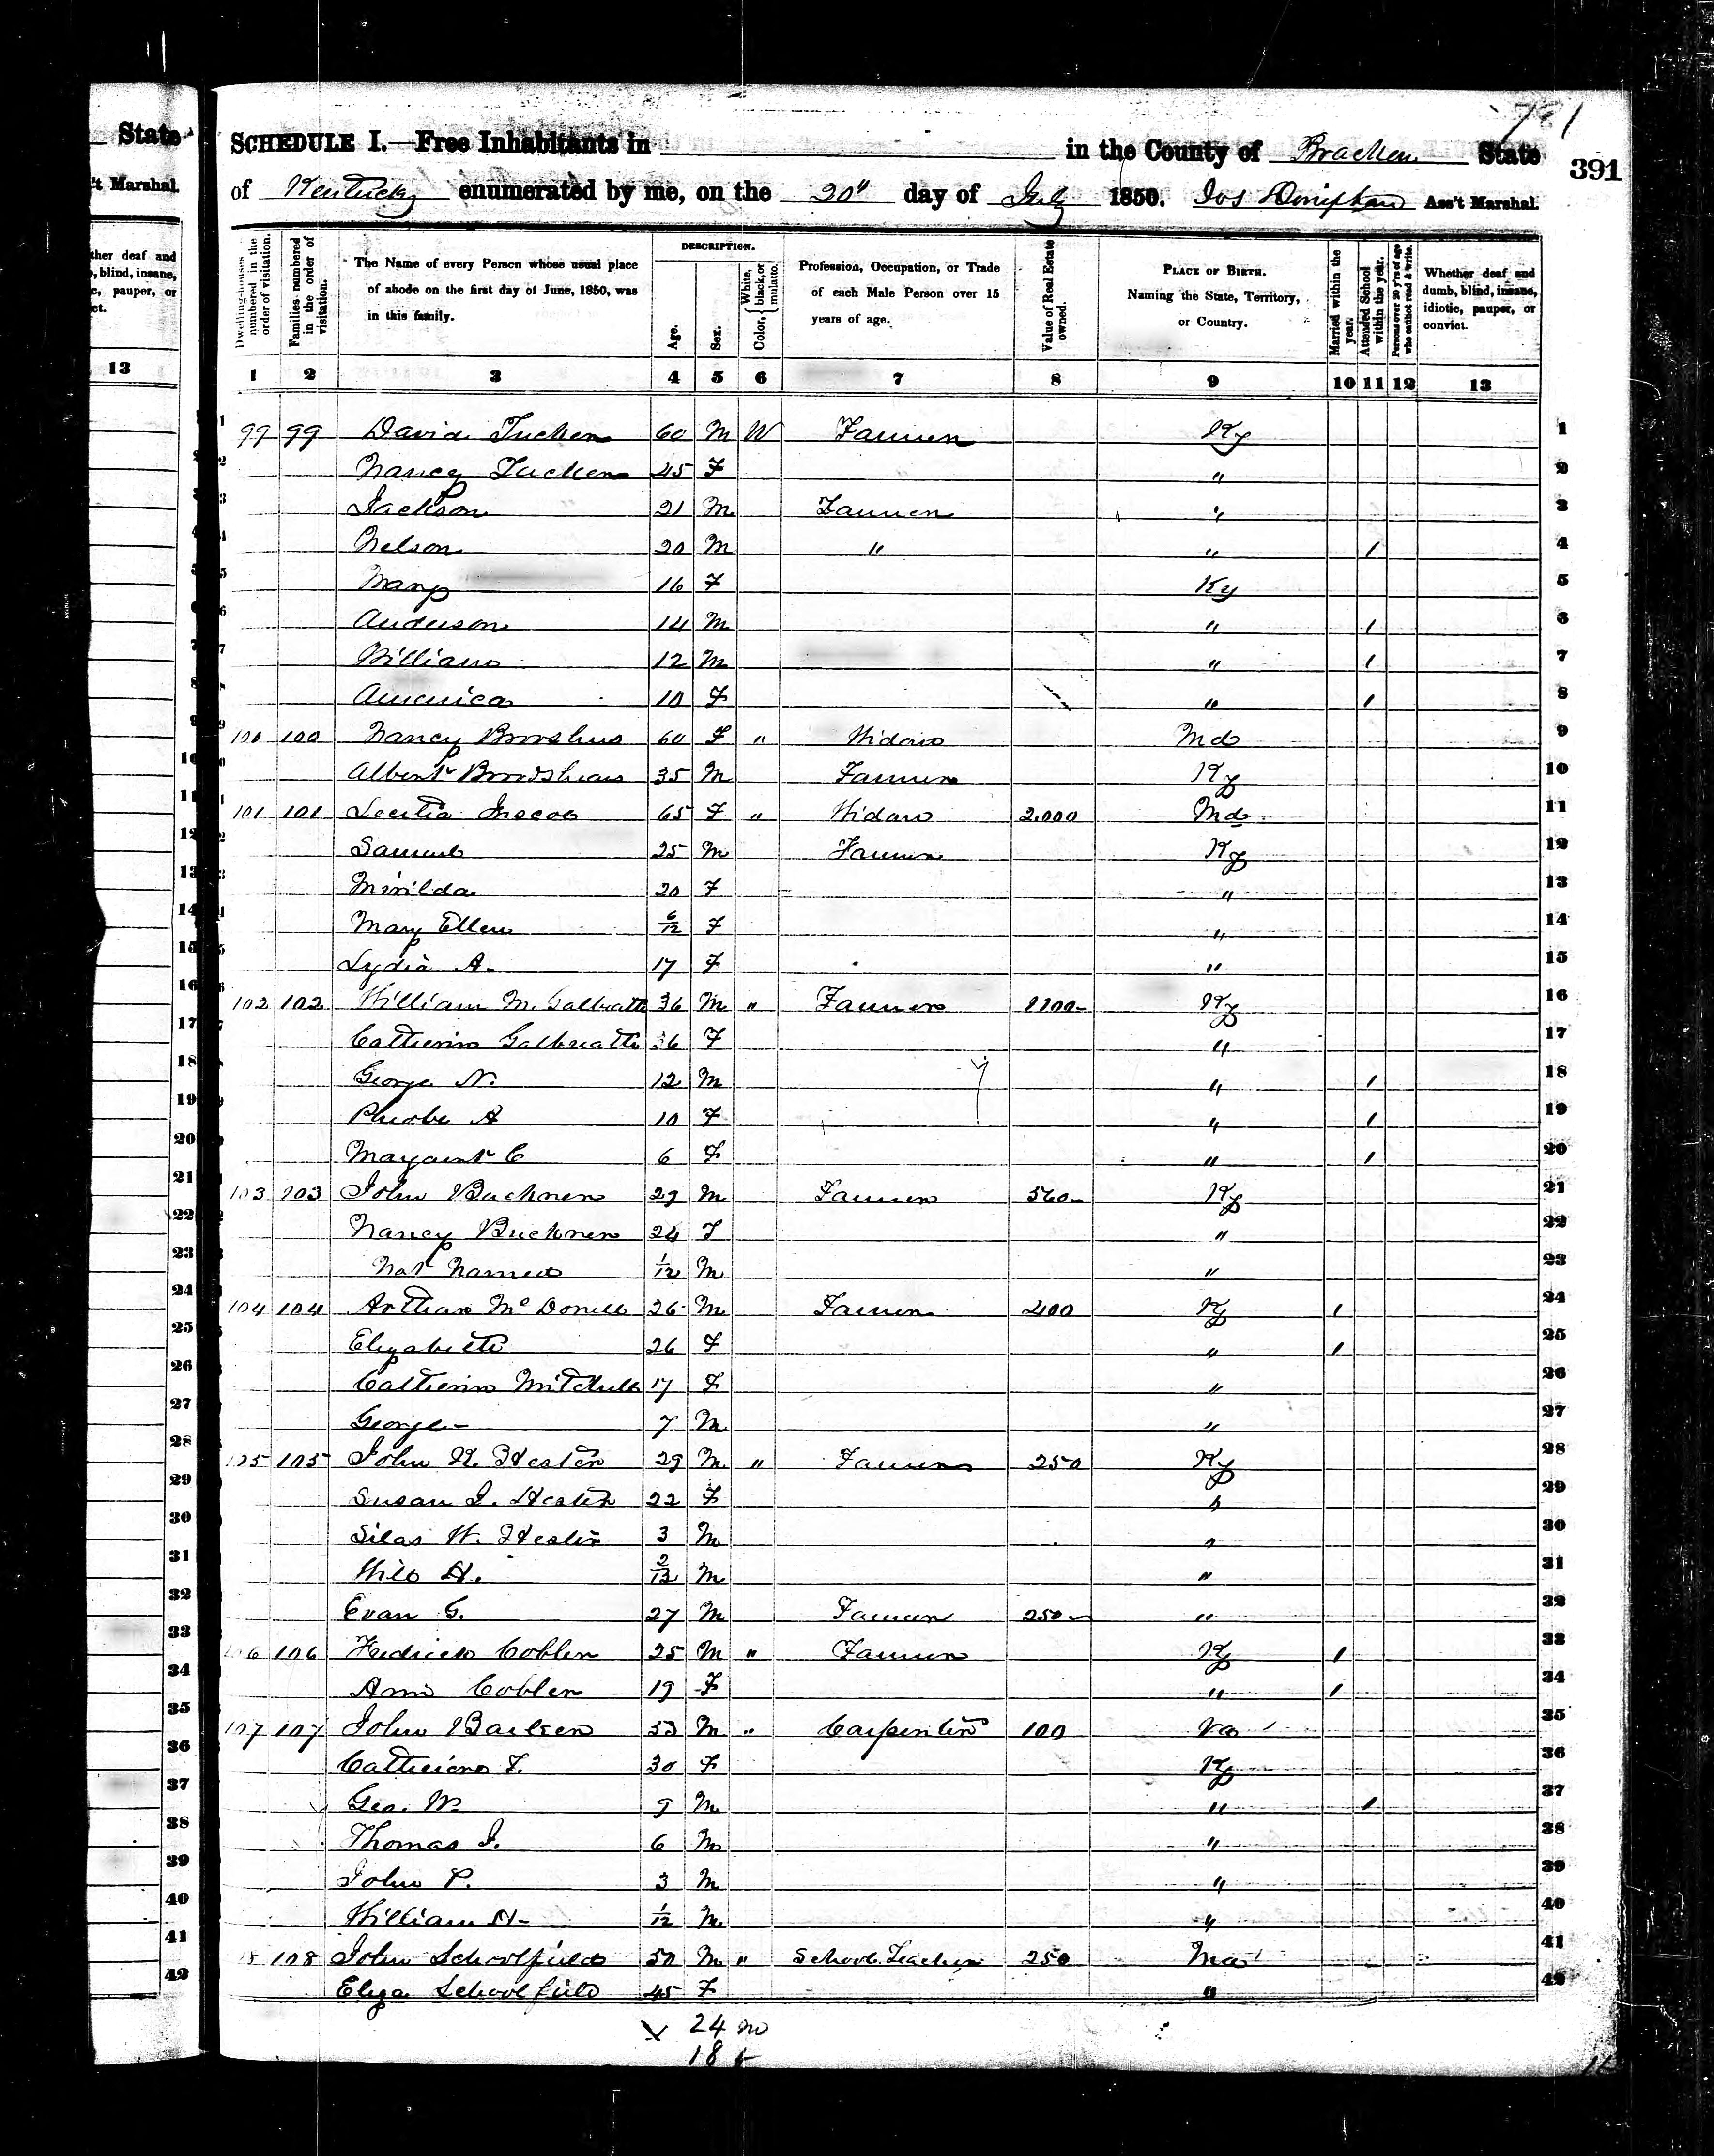 781
SCHEDULE I.—Free Inhabitants in in the County of Bracken State
391
of Kentucky enumerated by me, on the 20" day of July 1850. Jos Doniphan Ass't Marshal.
State
't Marshal.
ther deaf and
, blind, insane,
c, pauper, or
ct.
13
Dwelling-houses numbered in the order of visitation.
Families numbered in the order of visitation.
The Name of every Person whose usual place of abode on the first day of June, 1850, was in this family.
DESCRIPTION.
Age.
Sex.
Color, { White, black, or mulatto.
Profession, Occupation, or Trade of each Male Person over 15 years of age.
Value of Real Estate owned.
PLACE OF BIRTH. Naming the State, Territory, or Country.
Married within the year.
Attended School within the year.
Persons over 20 y'rs of age who cannot read & write.
Whether deaf and dumb, blind, insane, idiotic, pauper, or convict.
1 2 3 4 5 6 7 8 9 10 11 12 13
99 99 David Tucker 60 M W Farmer Ky 1
Nancy Tucker 45 F " 2
Jackson 21 M Farmer " 3
Nelson 20 M " " 1 4
Mary 16 F Ky 5
Anderson 14 M " 1 6
William 12 M " 1 7
America 10 F " 1 8
100 100 Nancy 60 F " Widow Md 9
Albert 35 M Farmer Ky 10
101 101 65 F " Widow 2.000 Md 11
Samuel 25 M Farmer Ky 12
20 F " 13
Mary Ellen 6/12 F " 14
Lydia A. 17 F " 15
102 102 William M. Galbreath 36 M " Farmer Ky 16
Catherine Galbreath 36 F " 17
George N. 12 M " 1 18
Phoebe A 10 F " 1 19
Margaret C 6 F " 1 20
103 103 John Buckner 29 M Farmer 560 Ky 21
Nancy Buckner 24 F " 22
Not Named 1/12 M " 23
104 104 Arthur McDonell 26 M Farmer 400 Ky 1 24
Elizabeth 26 F " 1 25
Catherine Mitchell 17 F " 26
George 7 M " 27
105 105 John K. Hester 29 M " Farmer 250 Ky 28
Susan J. Hester 22 F " 29
Silas W. Hester 3 M " 30
2/12 M " 31
Evan G. 27 M Farmer 250 " 32
106 106 Fedrick Cobler 25 M " Farmer Ky 1 33
Ann Cobler 19 F " 1 34
107 107 John 53 M " Carpenter 100 Va 35
Catherine F. 30 F Ky 36
Geo. W. 9 M " 1 37
Thomas J. 6 M " 38
John P. 3 M " 39
William H 1/12 M " 40
108 John Schoolfield 50 M " School Teacher 250 41
Eliza Schoolfield 45 F " 42
24 m
18 f